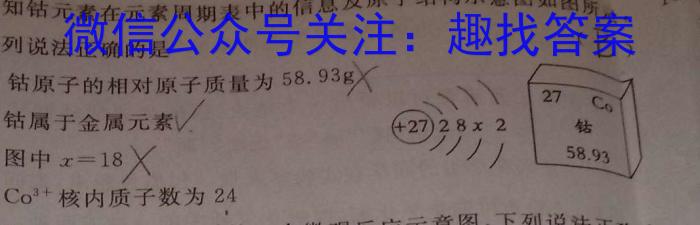 知钴元素在元素周期表中的信息及原子结构示意图如图所
微信公众号关注：趣找答案
列说法正确的是
钴原子的相对原子质量为58.93g
钴属于金属元素
图中x=18
Co³⁺核内质子数为24
+27 2 8 x 2
27 Co
钴
58.93
示意图，下列说法正